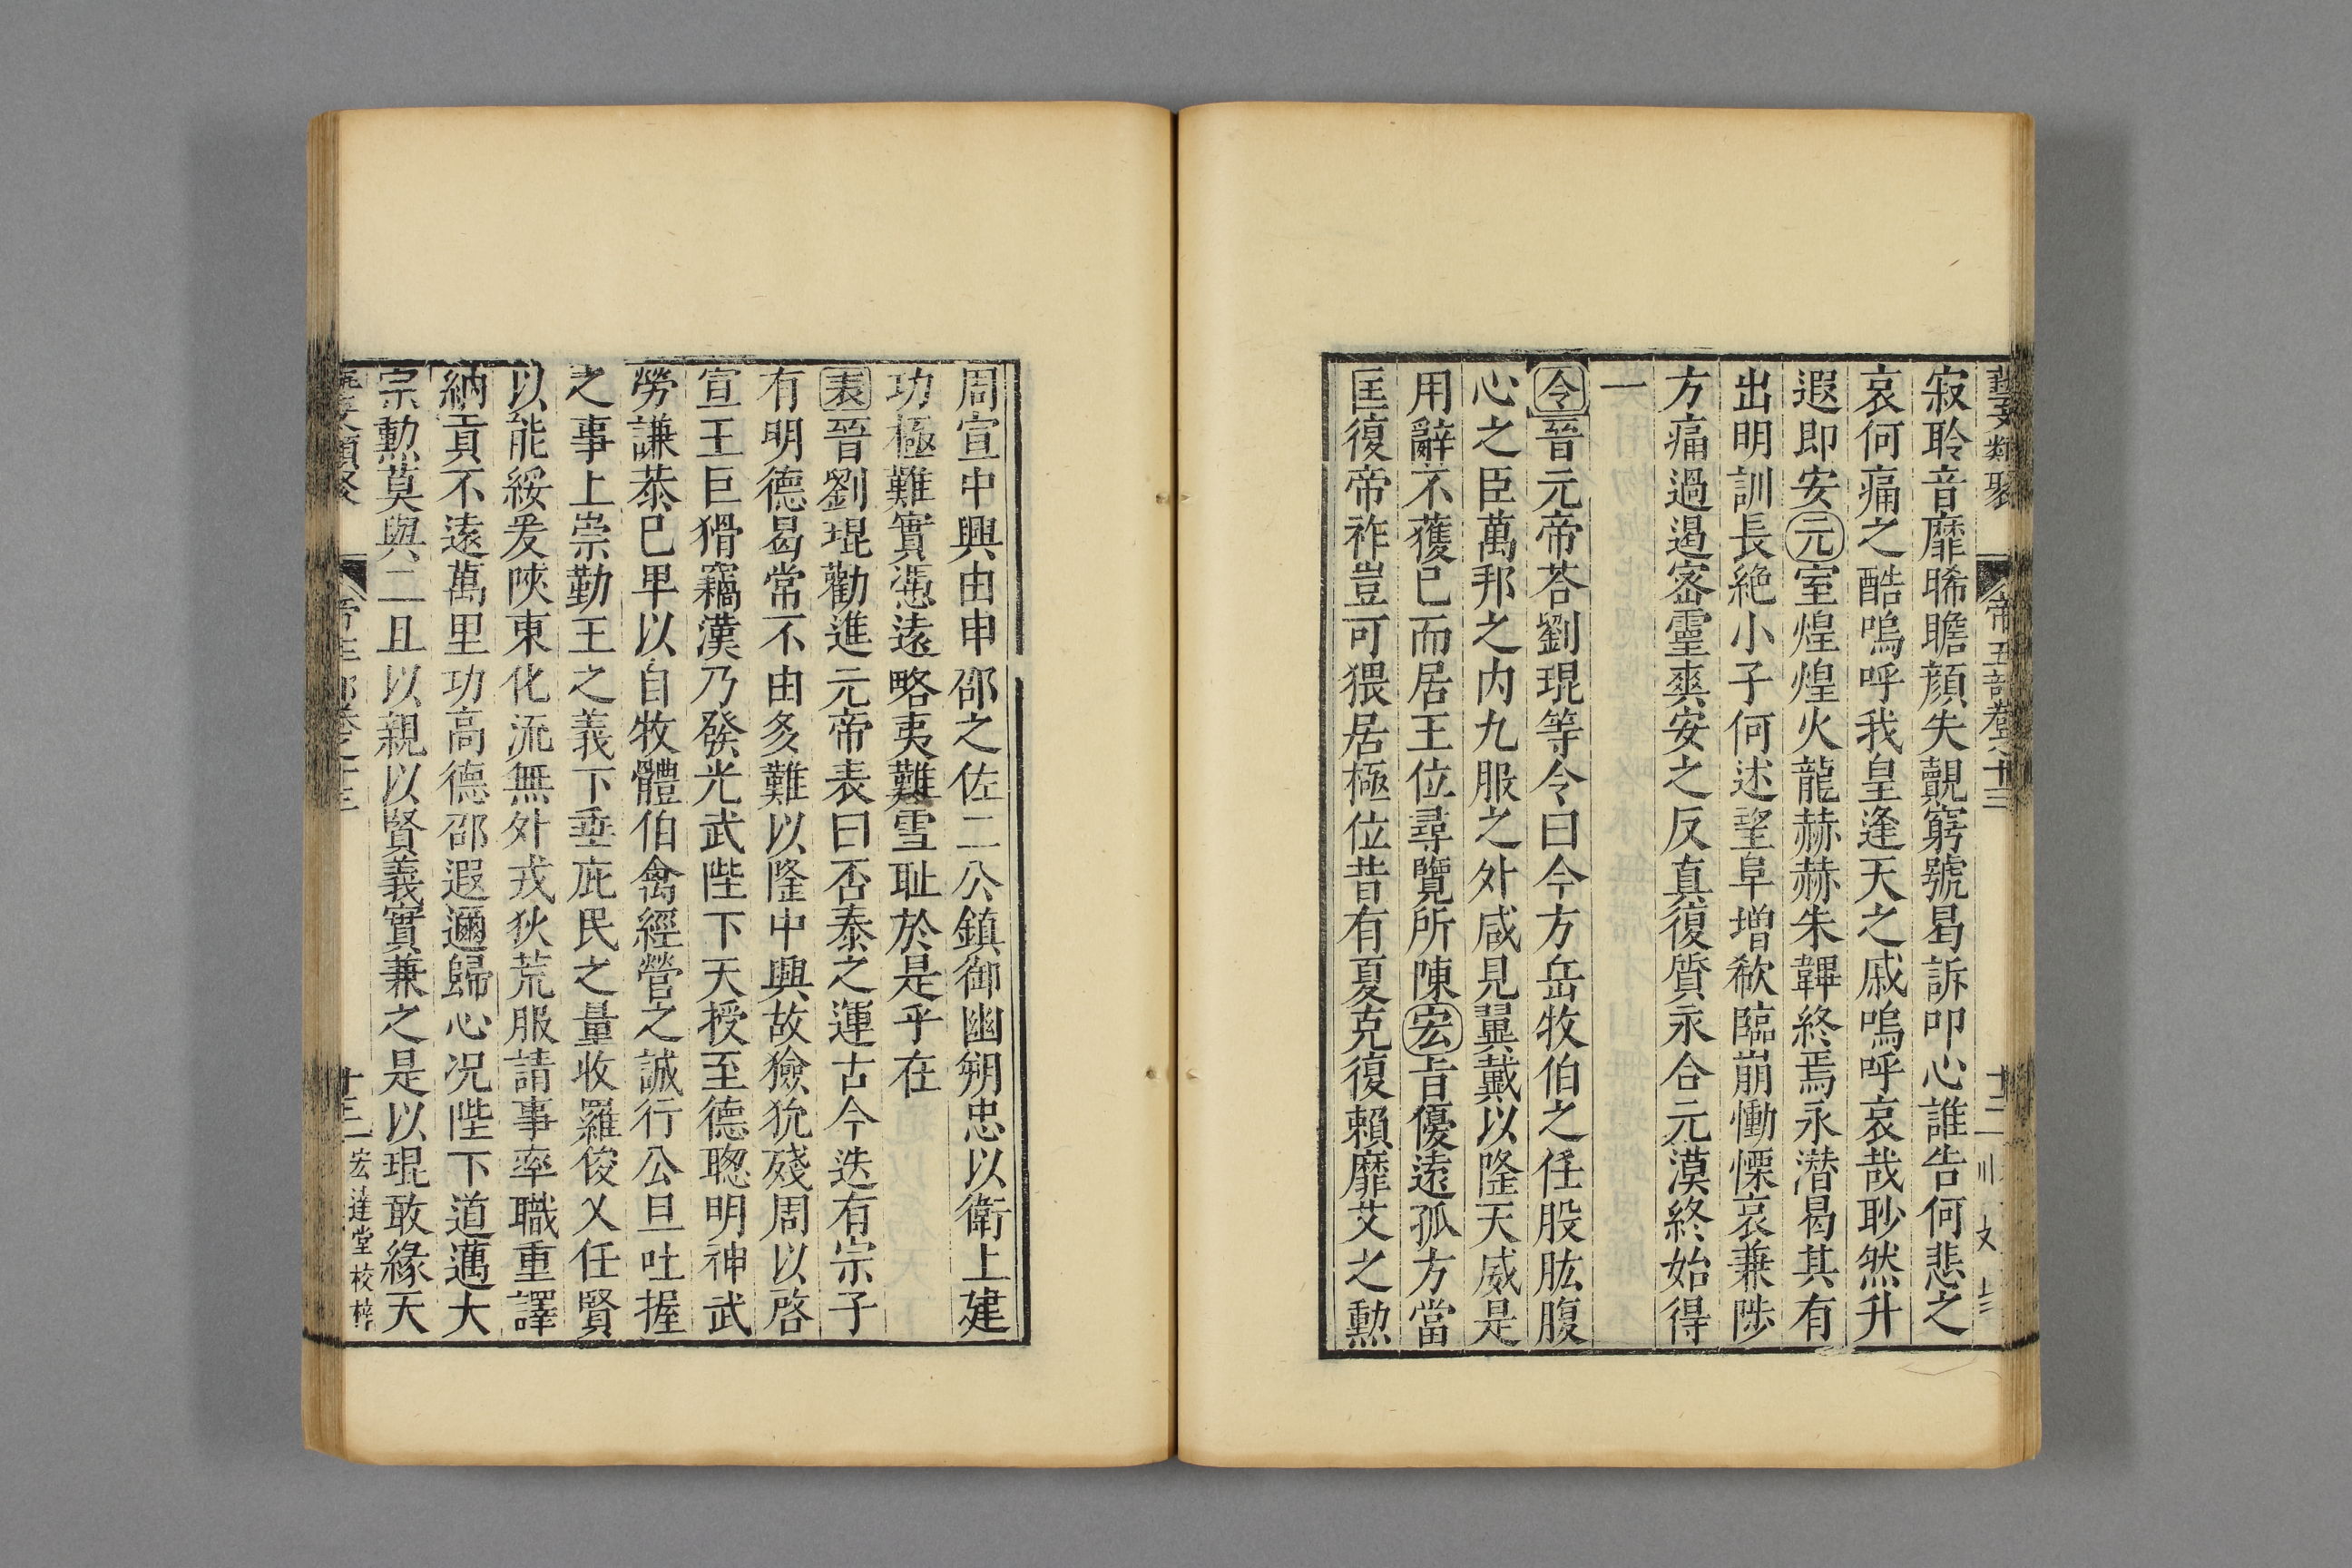 藝文類聚 帝王部卷之十三 十二
寂聆音靡睎瞻顏失覿窮號曷訴叩心誰告何悲之
哀何痛之酷嗚呼我皇逢天之戚嗚呼哀哉眇然升
遐即安元室煌煌火龍赫赫朱韠終焉永潛曷其有
出明訓長絶小子何述望阜增欷臨崩慟慄哀兼陟
方痛過遏宻靈爽安之反真復質永合元漠終始得
一
令晉元帝荅劉琨等令曰今方岳牧伯之任股肱腹
心之臣萬邦之内九服之外咸見翼戴以隆天威是
用辭不獲已而居王位尋覽所陳宏旨優遠孤方當
匡復帝祚豈可猥居極位昔有夏克復賴靡艾之勲
周宣中興由申邵之佐二公鎮御幽朔忠以衛上建
功極難實憑遠略夷難雪耻於是乎在
表晉劉琨勸進元帝表曰否泰之運古今迭有宗子
有明德曷常不由多難以隆中興故獫狁殘周以啓
宣王巨猾竊漢乃發光武陛下天授至德聰明神武
勞謙恭已卑以自牧體伯禽經營之誠行公旦吐握
之事上崇勤王之義下垂庇民之量收羅俊乂任賢
以能綏爰陜東化流無外戎狄荒服請事率職重譯
納貢不遠萬里功高德邵遐邇歸心况陛下道邁大
宗勲莫與二且以親以賢義實兼之是以琨敢緣天
藝文類聚 帝王部卷之十三 十三 宏達堂校梓